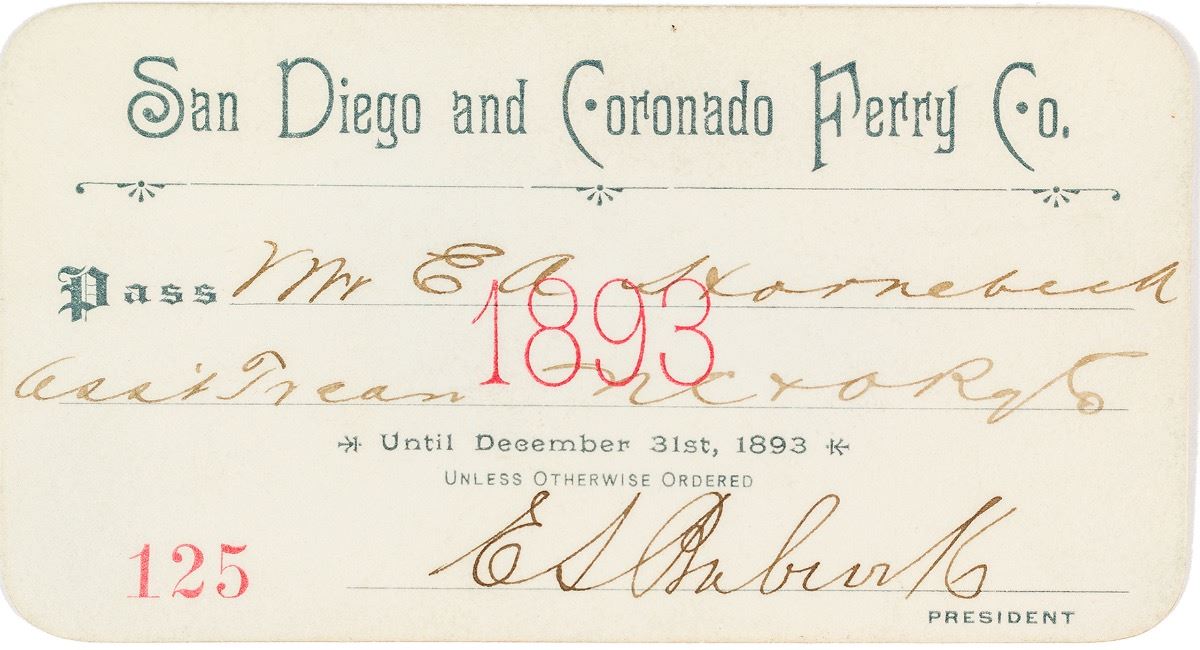 San Diego and Coronado Ferry Co.
Pass Mr E A Hornebeck
1893
Ass't Treas N C & O Ry Co
Until December 31st, 1893
UNLESS OTHERWISE ORDERED
125
E S Babcock
PRESIDENT